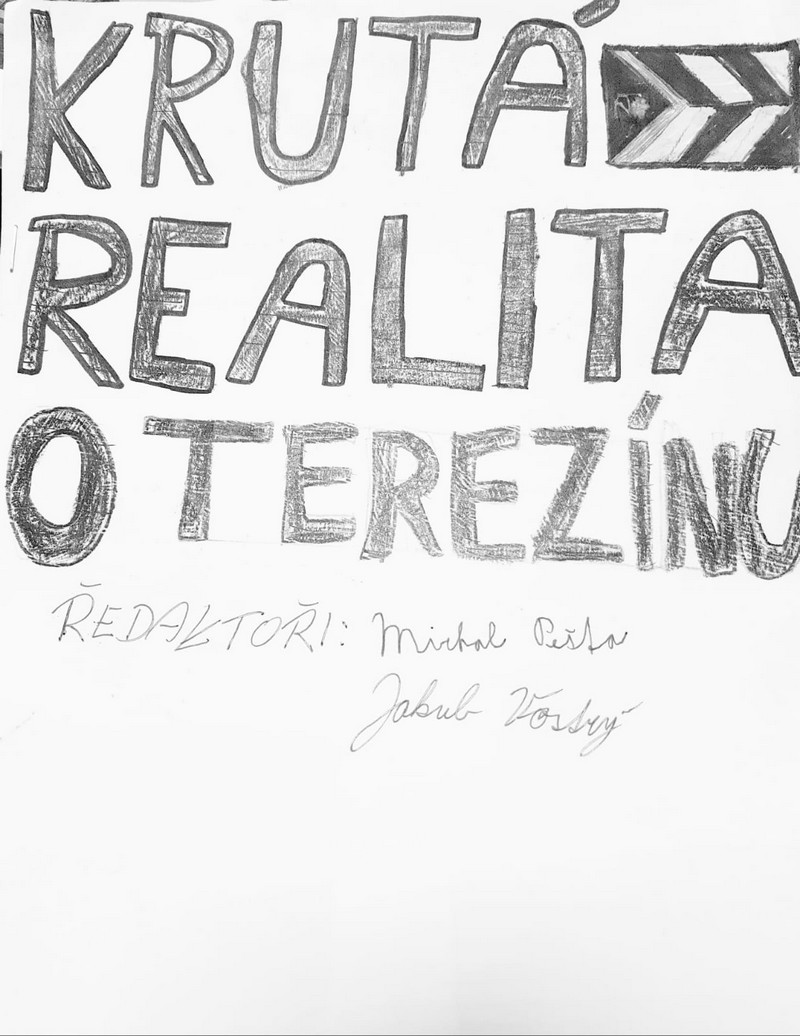 KRUTÁ
REALITA
O TEREZÍNU
ŘEDAKTOŘI: Michal Pešta
Jakub Vostrý